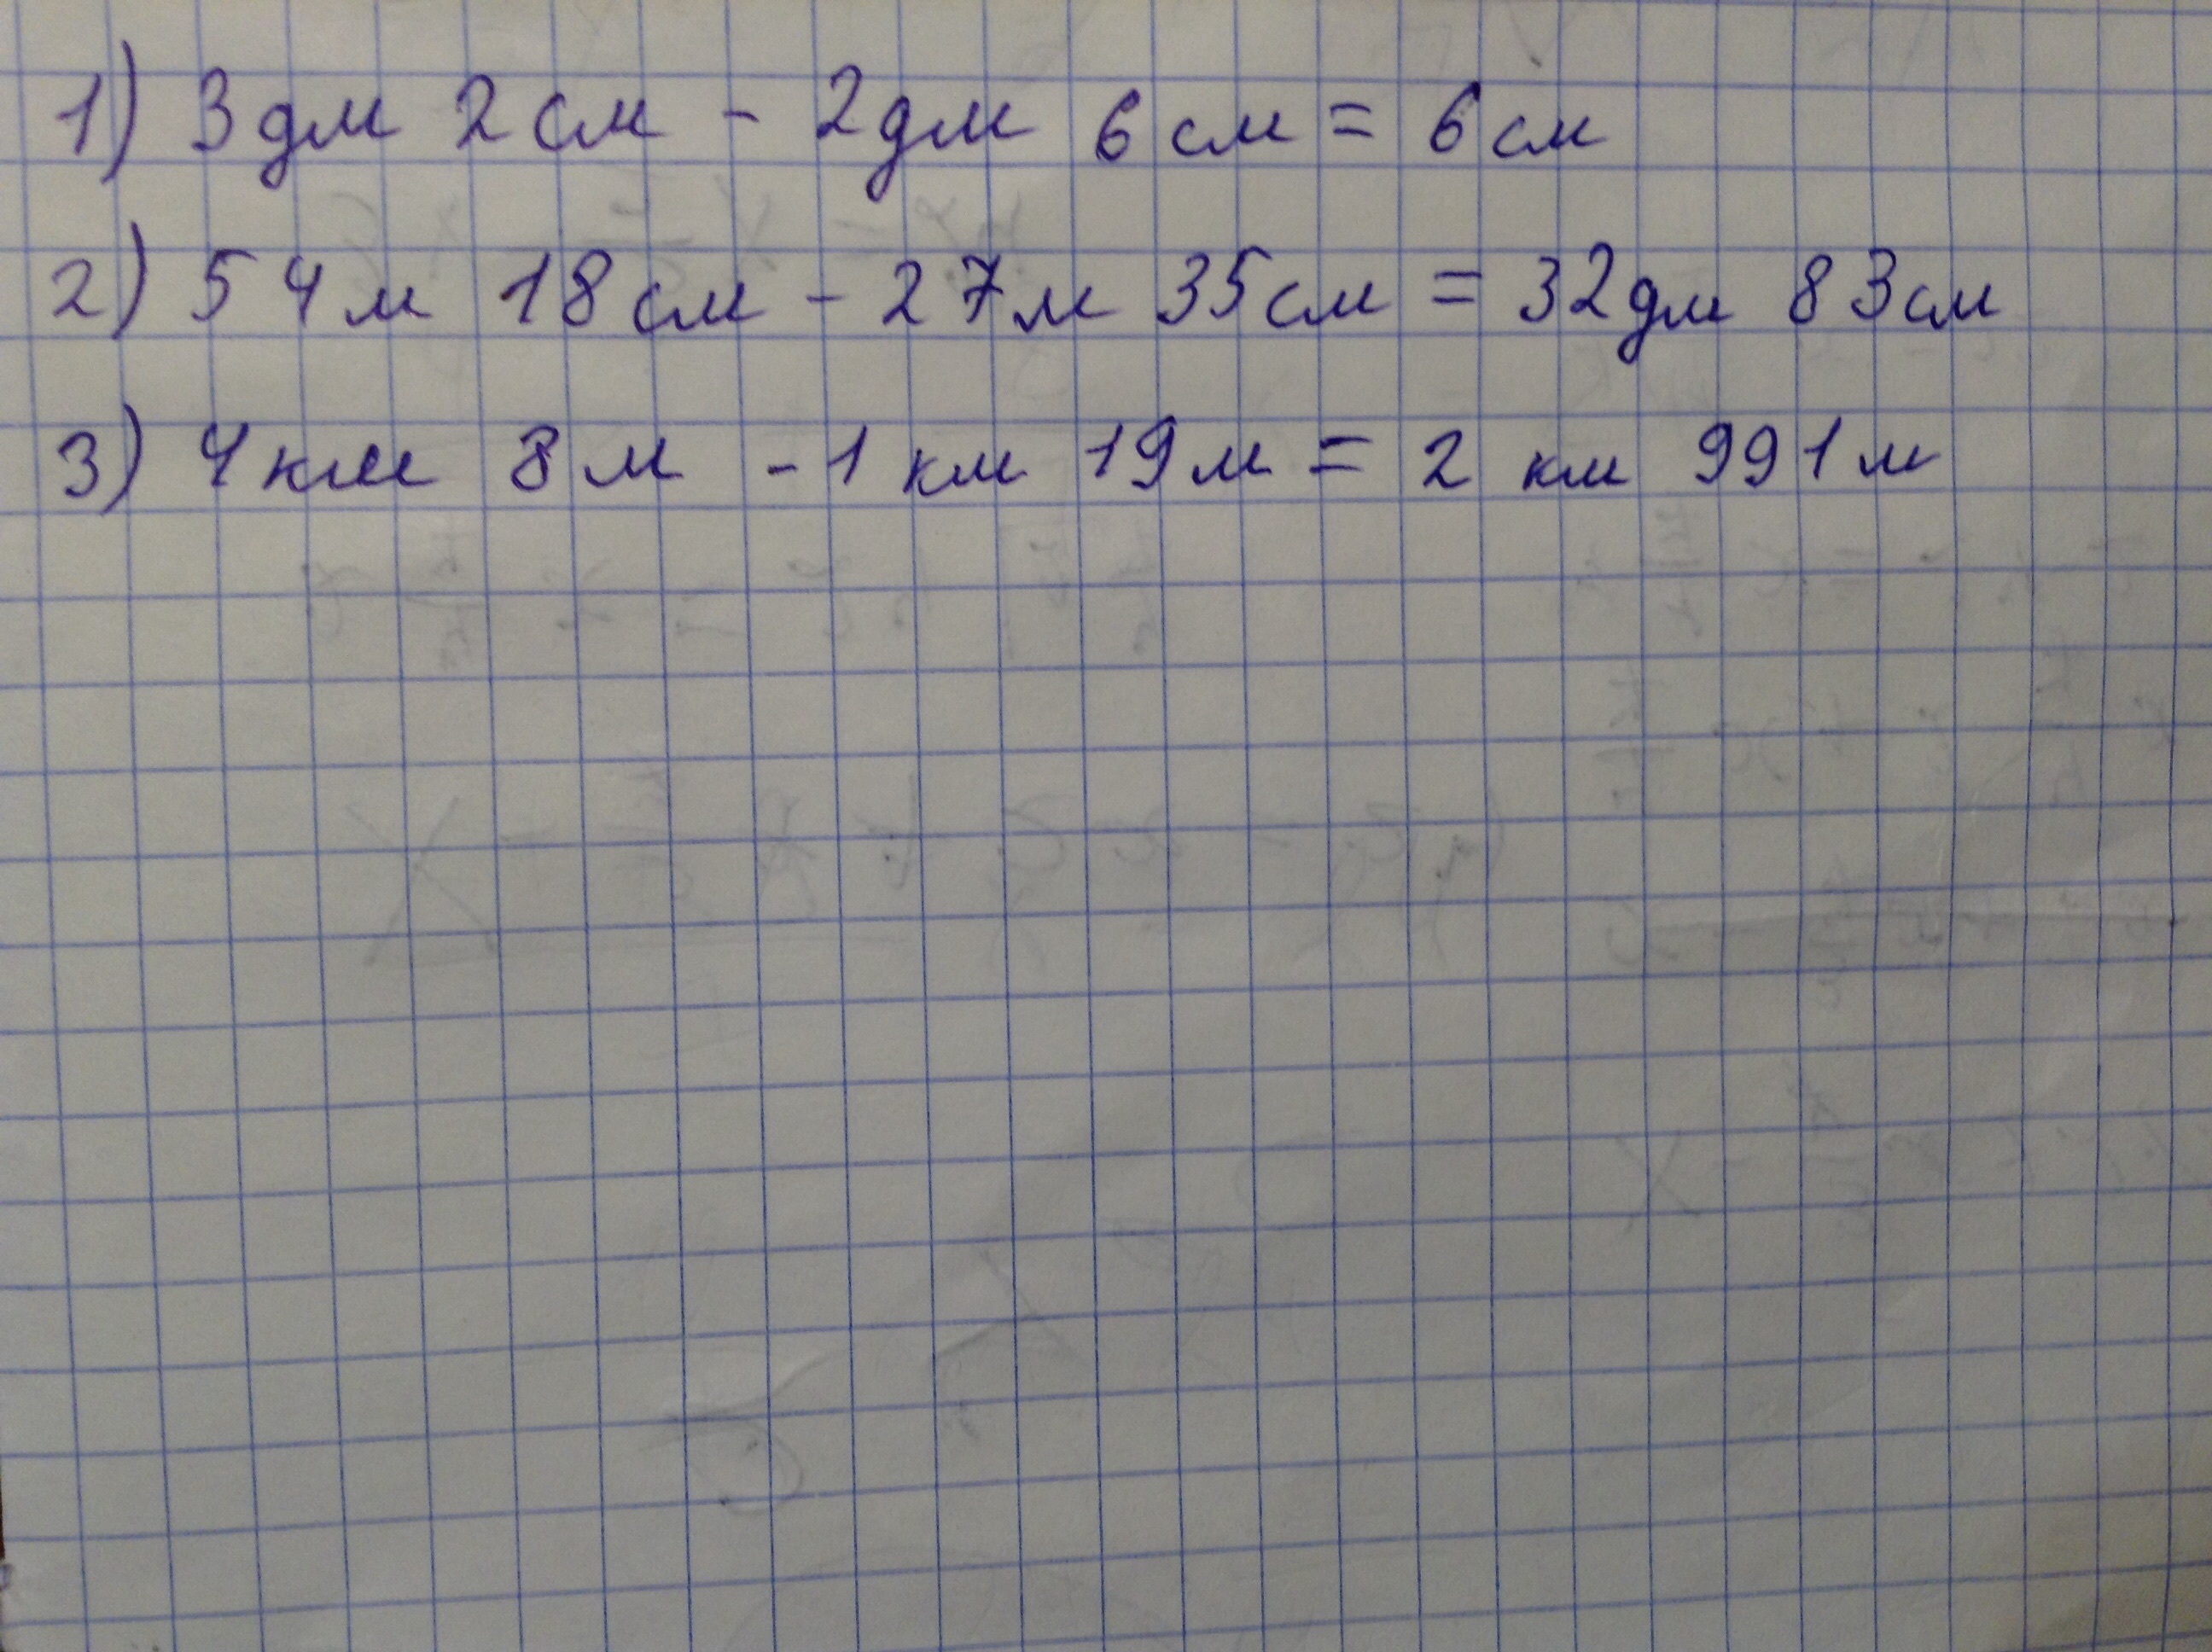 1) 3дм 2см - 2дм 6см = 6см
2) 54м 18см - 27м 35см = 32дм 83см
3) 4км 8м - 1 км 19м = 2 км 991м